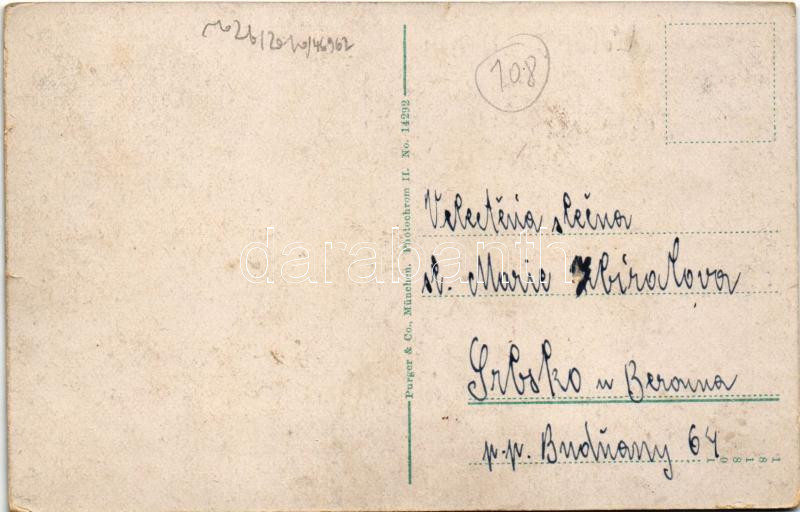 /46962
108
Purger & Co., München. Photochrom II. No. 14292
Velectěná slečna
sl. Marie Zbíralova
Srbsko u Berouna
p.p. Budňany 64
18180
darabanth